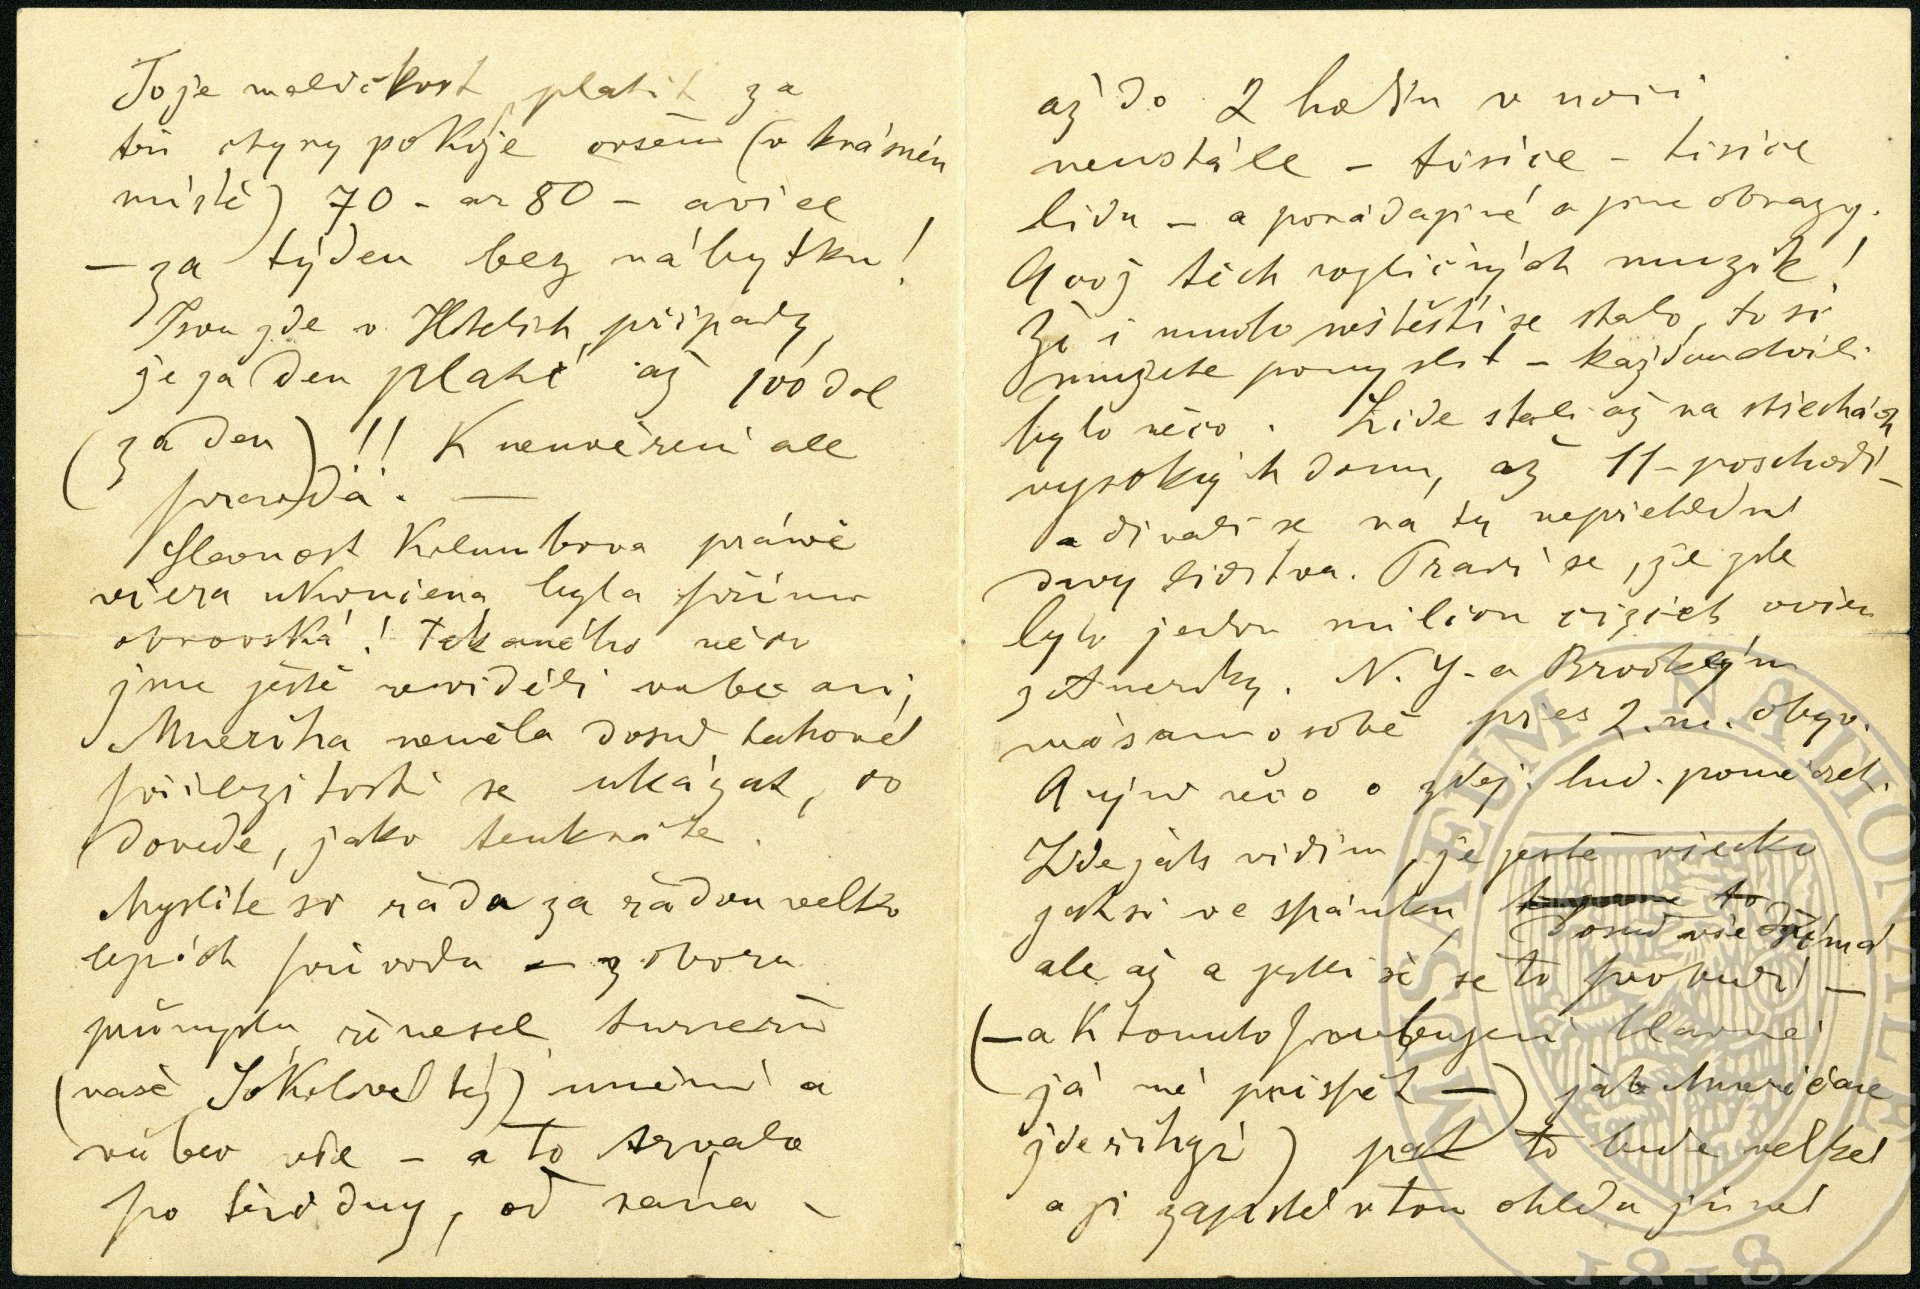 To je maličkost platit za
tři čtyry pokoje ovšem (v krásném
místě) 70 - až 80 - a více
- za týden bez nábytku!
Jsou zde v Hotelích případy,
že za den platí až 100 dol
(za den)!! K neuvěření ale
pravda. —
Slavnost Kolumbova právě
včera ukončena byla přímo
obrovská! Takového něco
jsme ještě neviděli vubec ani,
Amerika neměla dosud takové
příležitosti se ukázat, co
dovede, jako tenkráte.
Myslite si řada za řadou velko
lepých průvodu — z oboru
průmyslu, řemesel, turnerů
(naše Sokolové též) umění a
vůbec vše — a to trvalo
po tři dny, od rána -
až do 2 hodin v noci
neustále - tisíce - tisíce
lidu - a pořád jiné a jiné obrazy.
A což těch rozličných muzik!
Že i mnoho neštěstí se stalo, to si
mužete pomyslit - každou chvíli
bylo něco. Lide stali až na střechách
vysokých domu, až 11-poschodí -
a dívali se na ty nepřehledné
davy lidstva. Pravi se, že zde
bylo jeden milion cizích ovšem
z Ameriky. N.Y. a Brooklyn
má samo sobě přes 2. m. obyv.
A nyní něco o zdej. hud. poměrech.
Zde jak vidím, je jestě všecko
jaksi ve spánku, dosud vše dřímá
ale až a jestli že se to probudí —
(- a k tomuto probuzení hlavně
já mě prispět —) jak Američané
zde říkají) pak to bude velké
a ji zajisté v tom ohledu jiné
MUSAEUM NATIONALE
1818